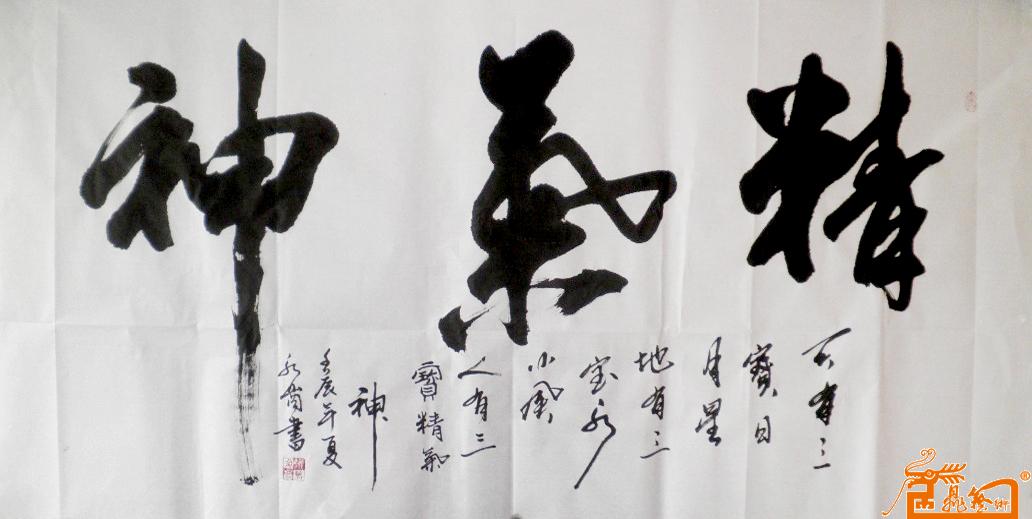 精氣神
天有三
寶日
月星
地有三
宝水
火風
人有三
寶精氣
神
壬辰年夏
永尚書